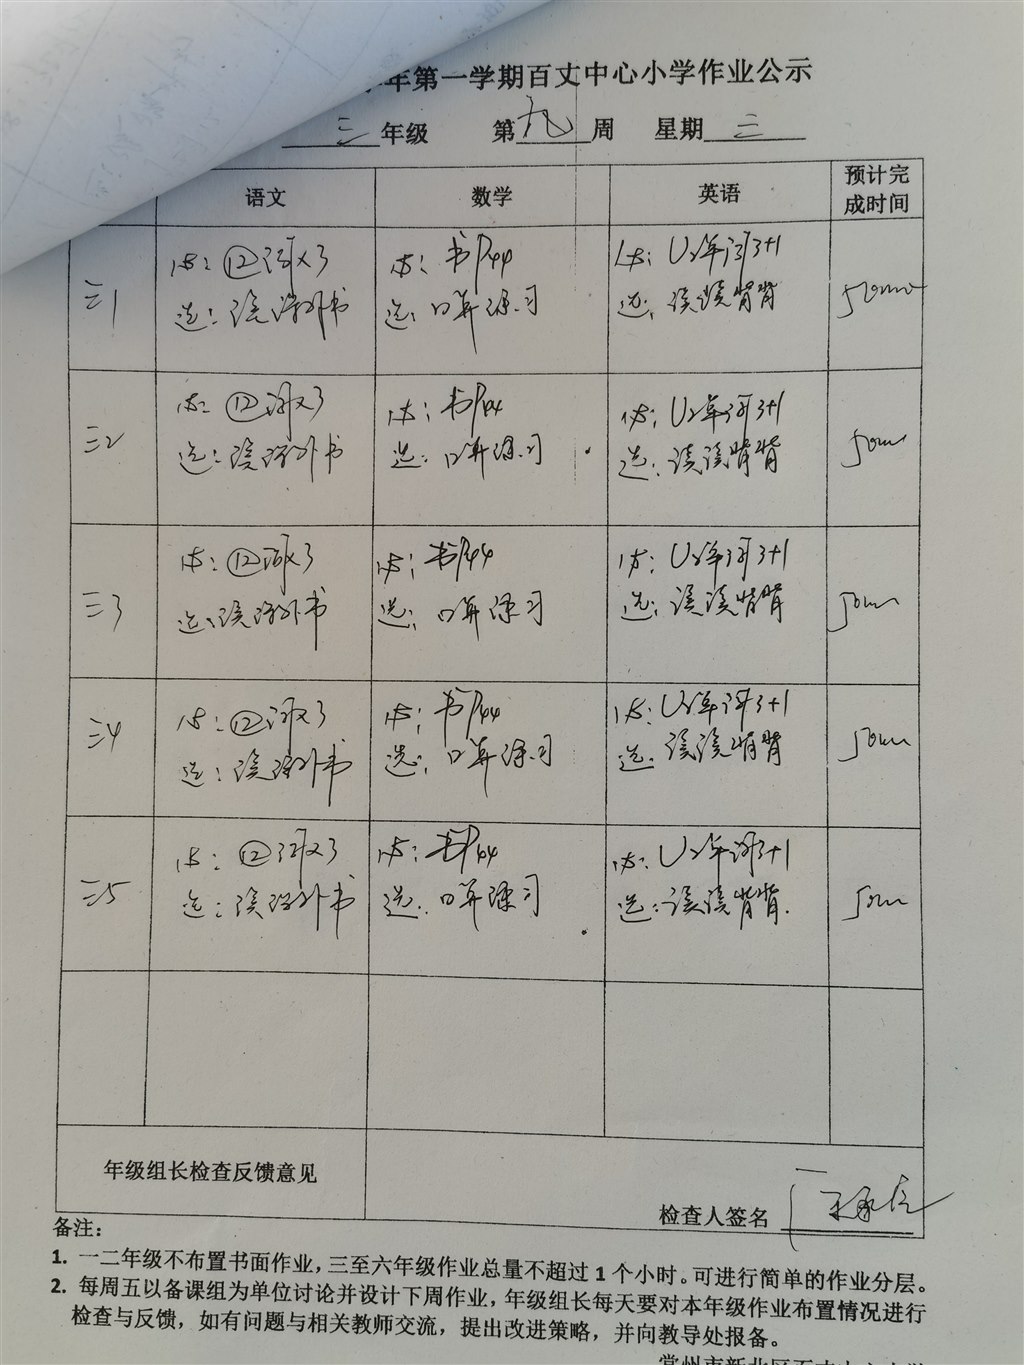 年第一学期百丈中心小学作业公示
三年级 第九周 星期三
语文 数学 英语 预计完成时间
三1 必: ⑫词×3 必: 书P44 必: U2单词3+1 50min
选: 读课外书 选: 口算练习 选: 读读背背
三2 必: ⑫词×3 必: 书P44 必: U2单词3+1 50min
选: 读课外书 选: 口算练习 选: 读读背背
三3 必: ⑫词×3 必: 书P44 必: U2单词3+1 50min
选: 读课外书 选: 口算练习 选: 读读背背
三4 必: ⑫词×3 必: 书P44 必: U2单词3+1 50min
选: 读课外书 选: 口算练习 选: 读读背背
三5 必: ⑫词×3 必: 书P44 必: U2单词3+1 50min
选: 读课外书 选: 口算练习 选: 读读背背
年级组长检查反馈意见
检查人签名
备注:
1. 一二年级不布置书面作业,三至六年级作业总量不超过1个小时。可进行简单的作业分层。
2. 每周五以备课组为单位讨论并设计下周作业,年级组长每天要对本年级作业布置情况进行
检查与反馈,如有问题与相关教师交流,提出改进策略,并向教导处报备。
常州市新北区百丈中心小学